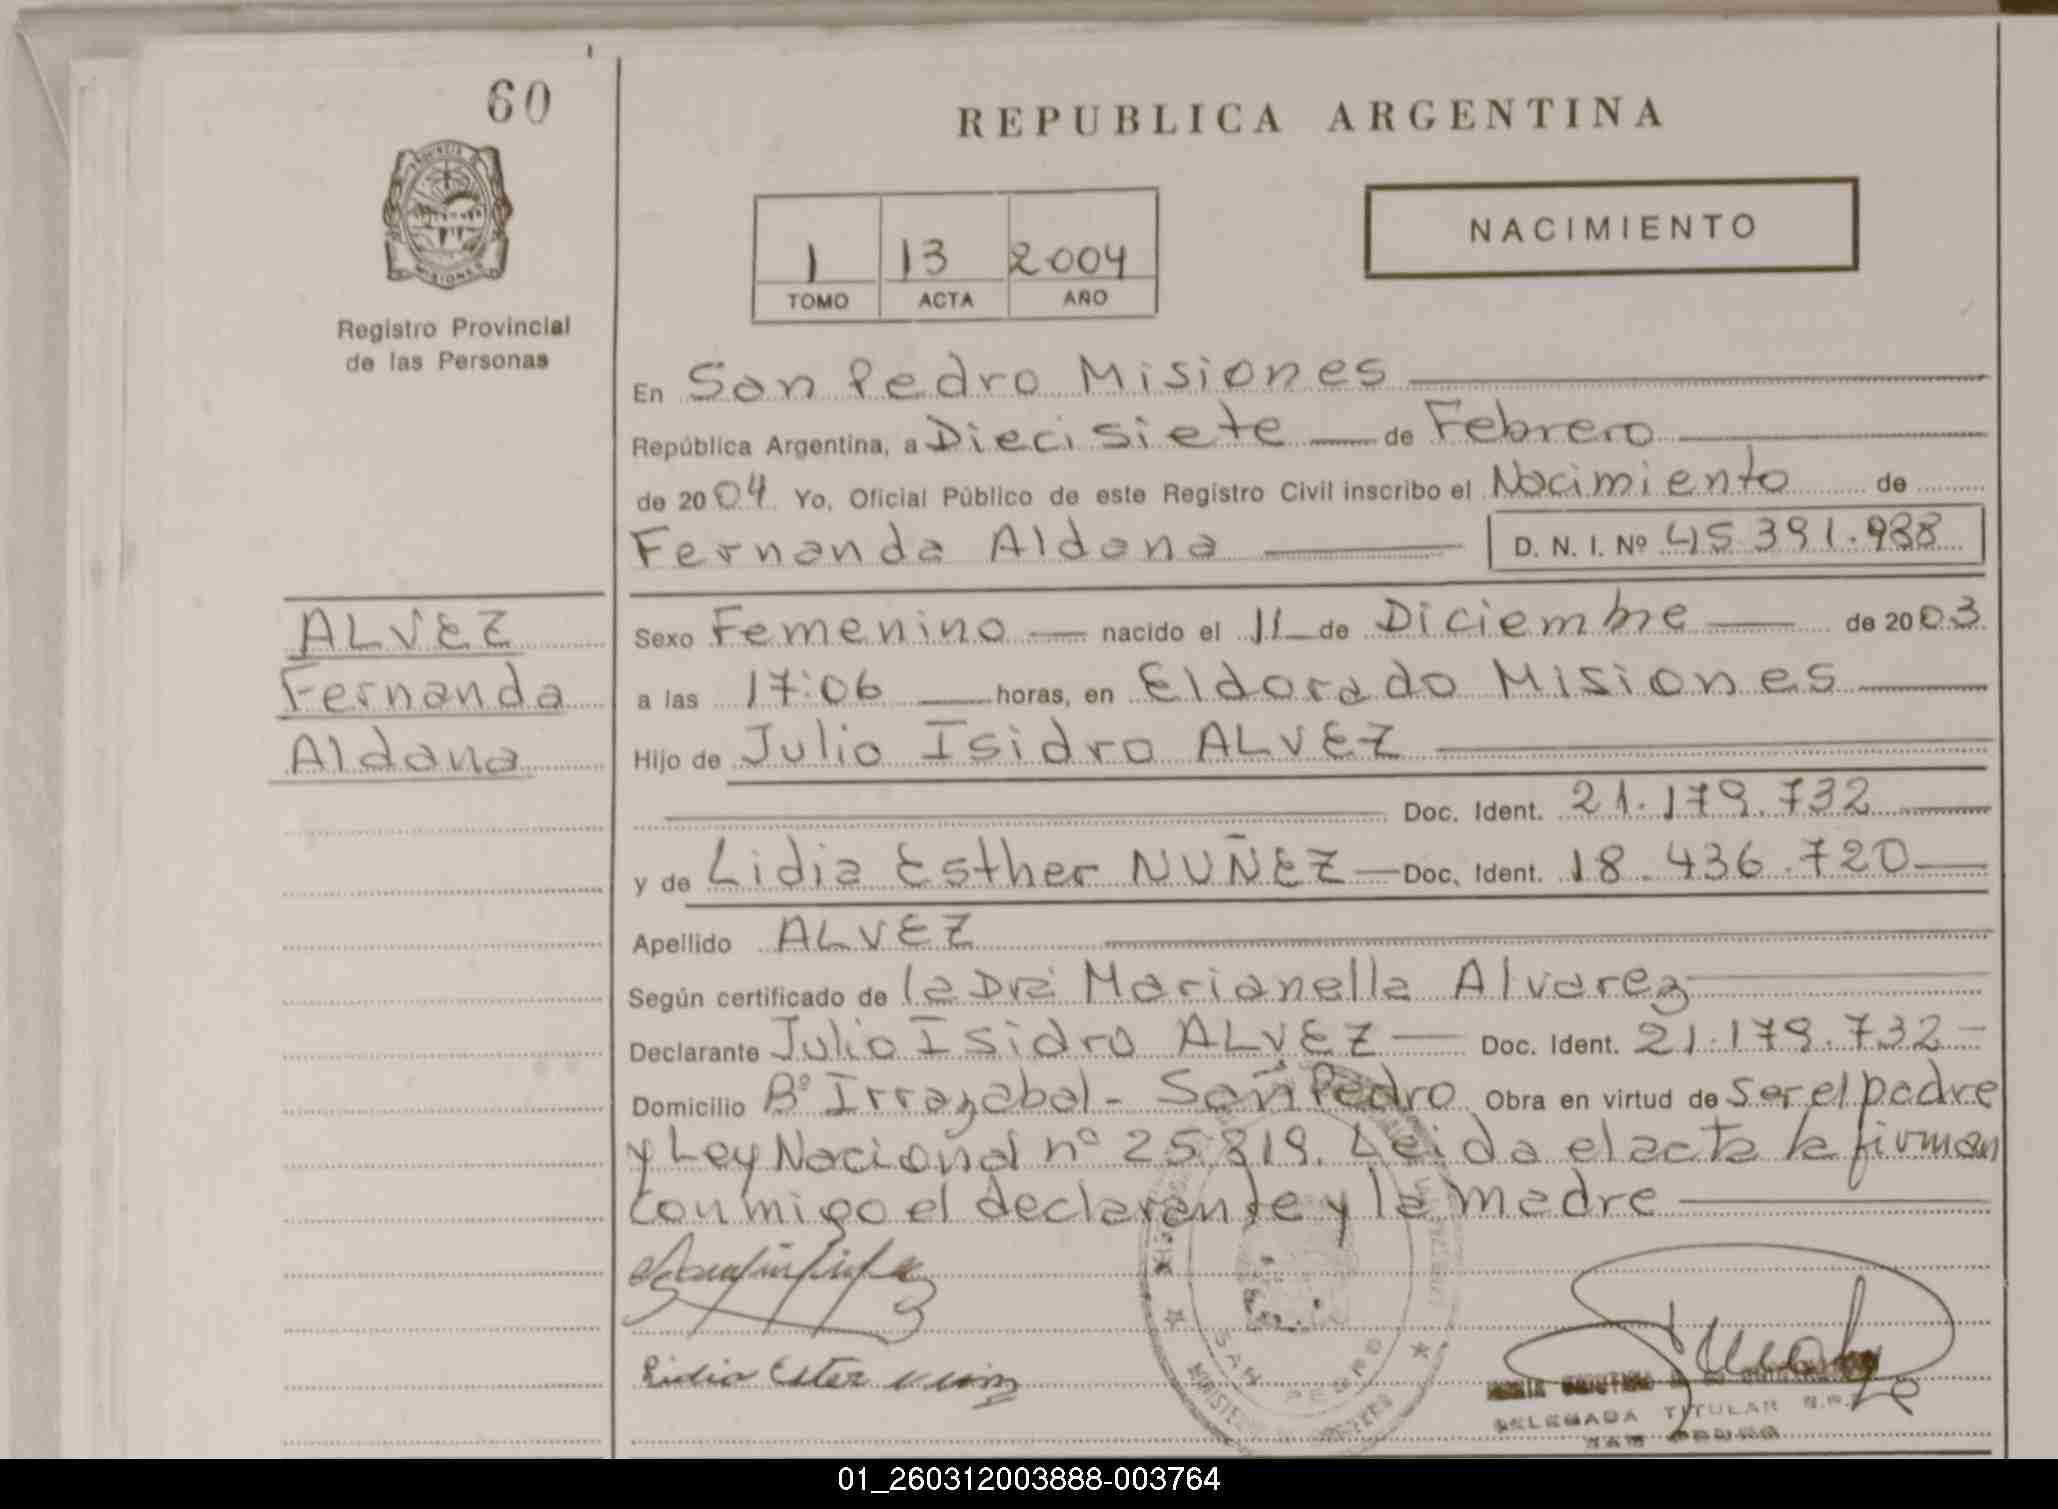 60
REPUBLICA ARGENTINA
PROVINCIA DE
MISIONES
NACIMIENTO
1 13 2004
TOMO ACTA AÑO
Registro Provincial
de las Personas
En San Pedro Misiones
República Argentina, a Diecisiete de Febrero
de 2004 Yo, Oficial Público de este Registro Civil inscribo el Nacimiento de
Fernanda Aldana D. N. I. Nº 45.391.988
ALVEZ
Fernanda
Aldana
Sexo Femenino nacido el 11 de Diciembre de 2003
a las 17:06 horas, en Eldorado Misiones
Hijo de Julio Isidro ALVEZ
Doc. Ident. 21.179.732
y de Lidia Esther NUÑEZ Doc. Ident. 18.436.720
Apellido ALVEZ
Según certificado de la Dra Marianella Alvarez
Declarante Julio Isidro ALVEZ Doc. Ident. 21.179.732
Domicilio Bº Irrazabal - San Pedro Obra en virtud de ser el padre
y Ley Nacional nº 25.819. Leida el acta la firman
conmigo el declarante y la madre
Lidia Ester
SAN PEDRO
DELEGADA TITULAR
SAN PEDRO
01_260312003888-003764